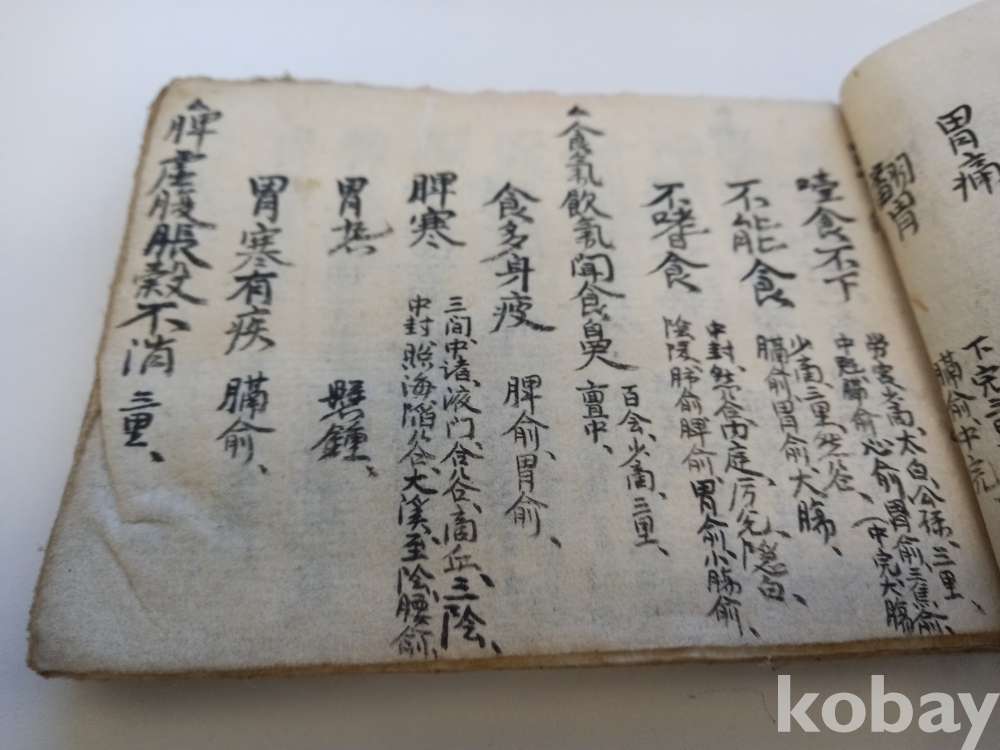 胃痛
翻胃
噎食不下
勞宮少商、太白、公孫、三里、
中魁膈俞、心俞胃俞三焦俞、(中完大腸
不能食
少商、三里、然谷、
膈俞胃俞、大腸、
不嗜食
中封、然谷內庭、厉兌隱白、
陰陵、肺俞脾俞、胃俞小腸俞、
食氣飲氣聞食臭
百会、少商、三里、
亶中、
食多身疲
脾俞、胃俞、
脾寒
三间、中诸、液门、合谷、商丘、三陰、
中封、照海陷谷、大溪、至陰、腰俞、
胃热
懸鍾、
胃寒有疾
膈俞、
脾虛腹脹穀不消
三里、
kobay